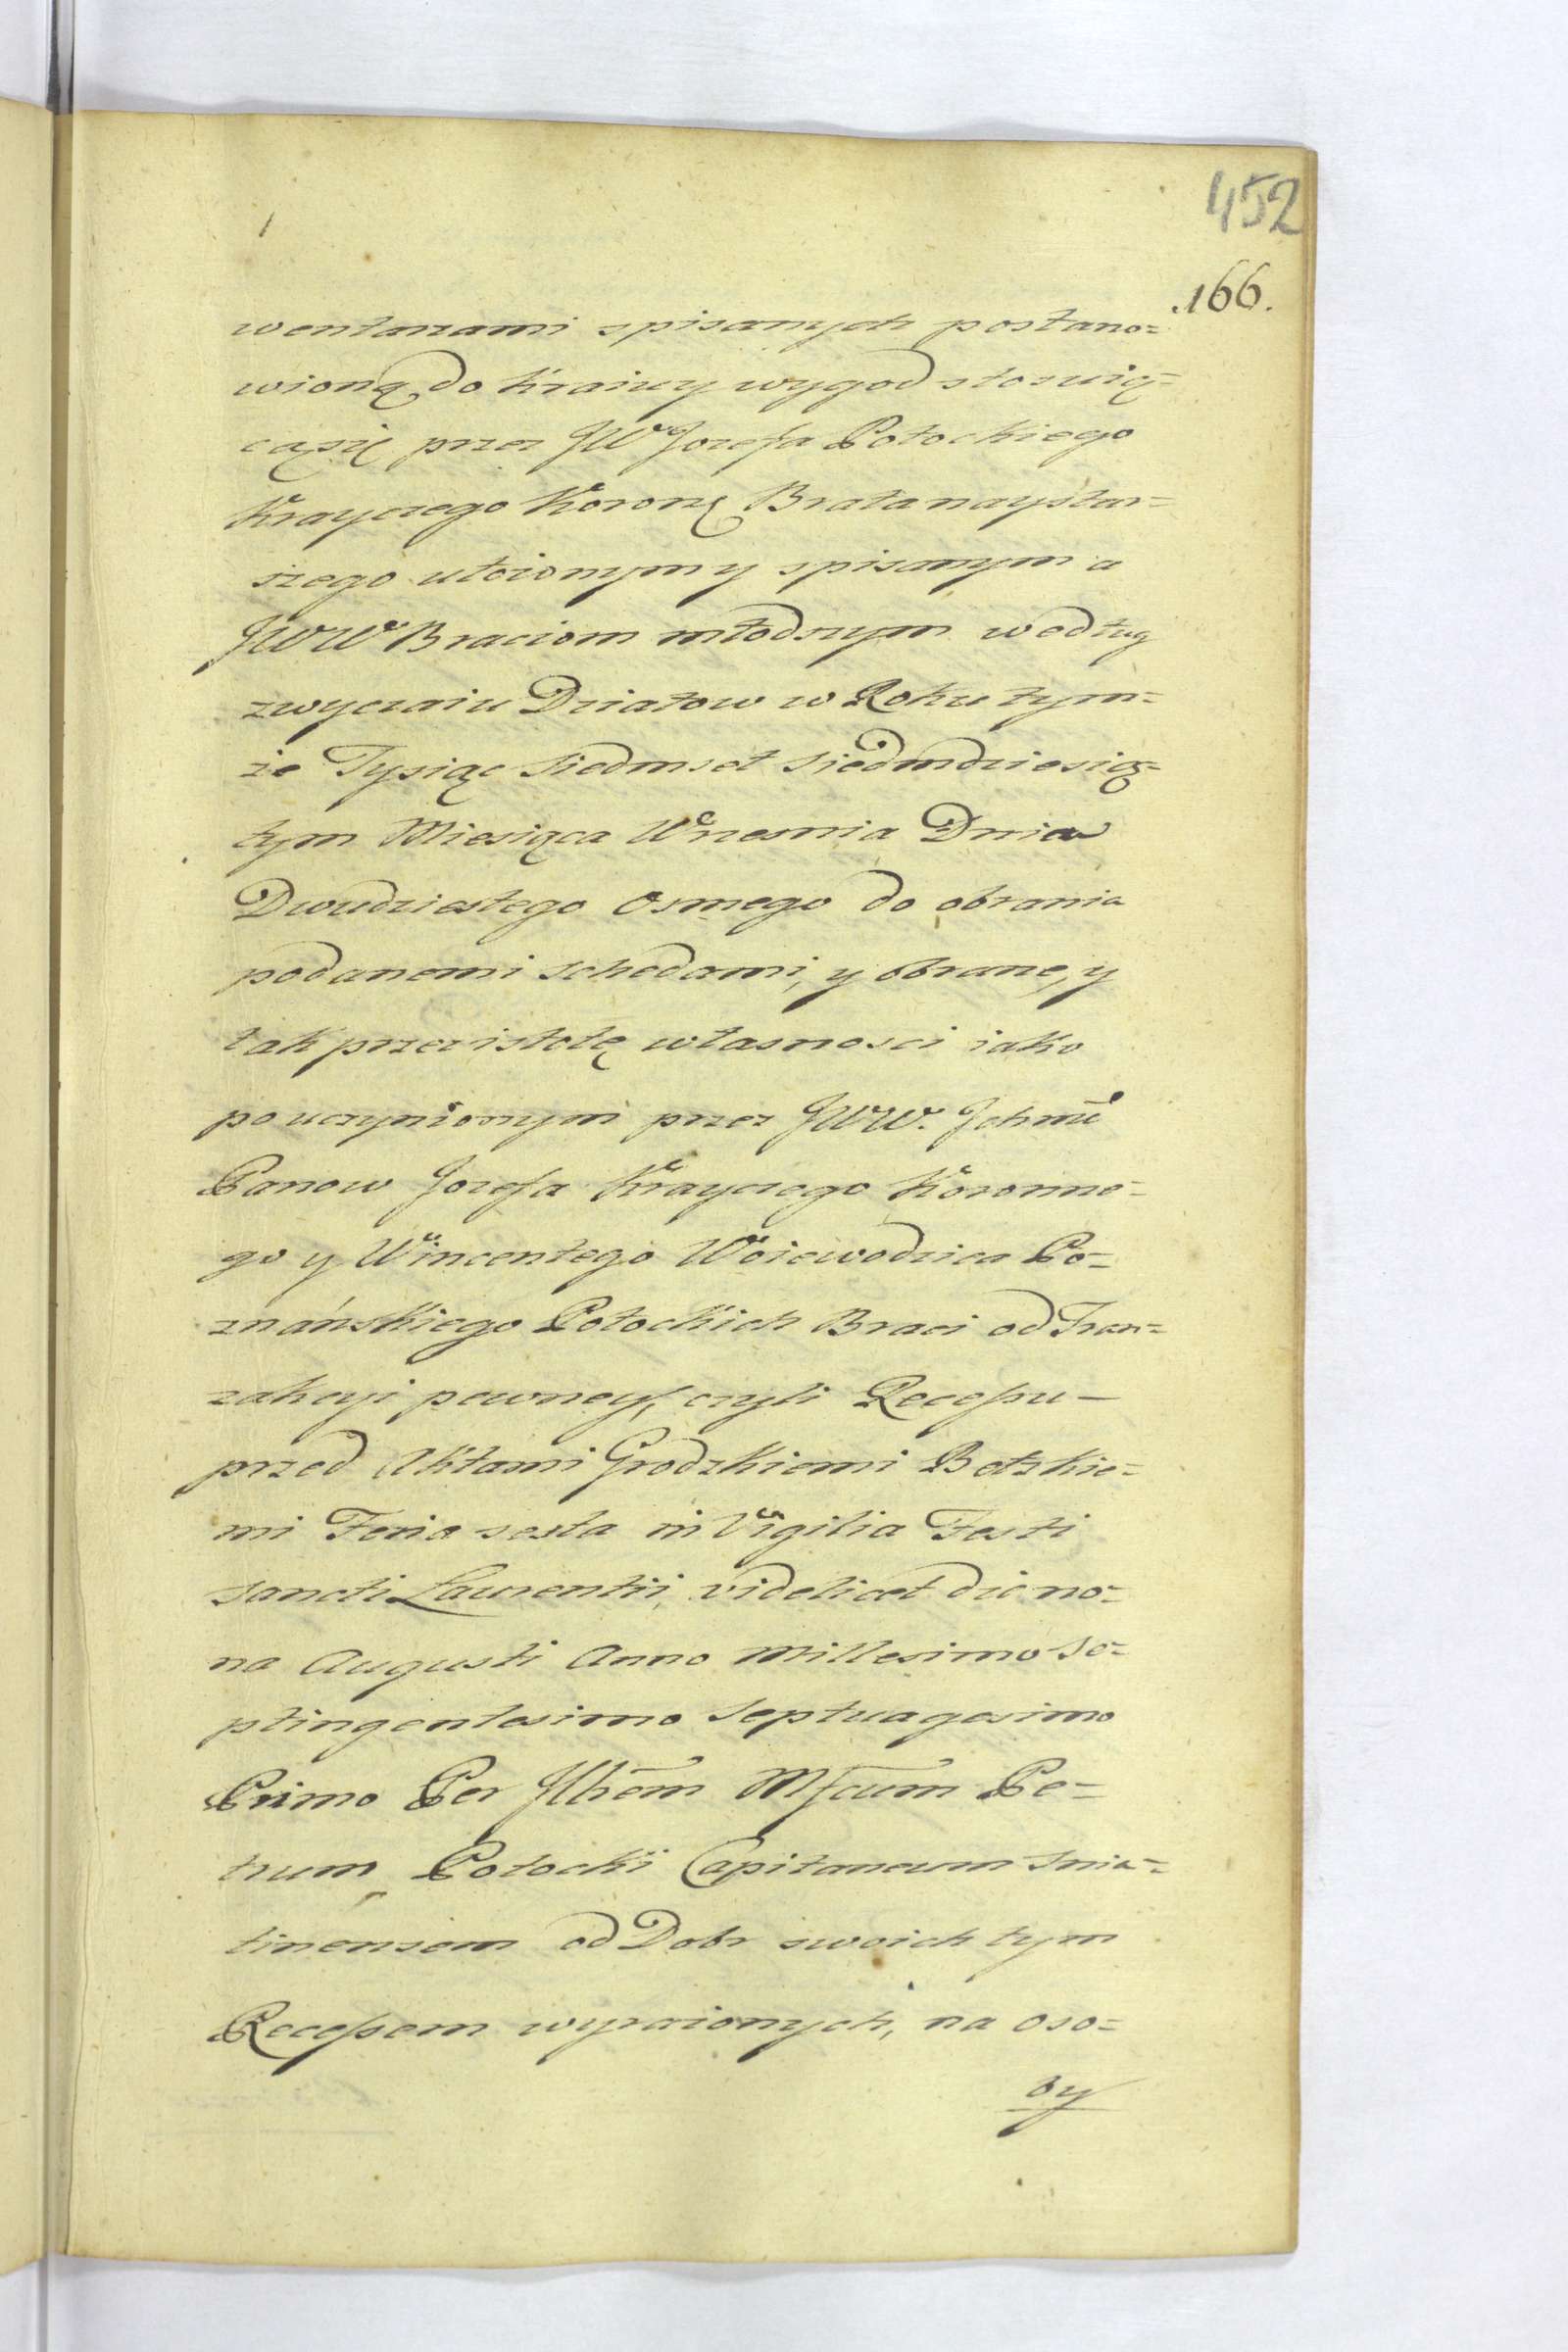 452
166.
wentarzami spisanych postano=
wioną do Krainy wygod stosuią=
cąsię przez JW Jozefa Potockiego
Krayczego Koronę Brata naystar=
szego ułożonym y spisanym a
JWW Braciom młodszym według
zwyczaiu Działow w Roku tym=
że Tysiąc Siedmset Siedmdziesią=
tym Miesiąca Wrzesnia Dnia
Dwudziestego Osmego do obrania
podanemi schedami, y obrane, y
tak przez istotę własnosci iako
po uczynionym przez JWW. Jchmć
Panow Jozefa Krayczego Koronne=
go y Wincentego Woiewodzica Po=
znańskiego Potockich Braci od Tran=
zakcyi pewney, czyli Recessu—
przed Aktami Grodzkiemi Bełzkie=
mi Feria sexta in Vigilia Festi
Sancti Laurentii, videlicet die no=
na Augusti Anno Millesimo Se=
ptingentesimo Septuagesimo
Primo Per Jllrēm Mfcūm Pe=
trum Potocki Capitaneum Snia=
tinensem od Dobr swoich tym
Recessem wyrażonych, na oso=
by